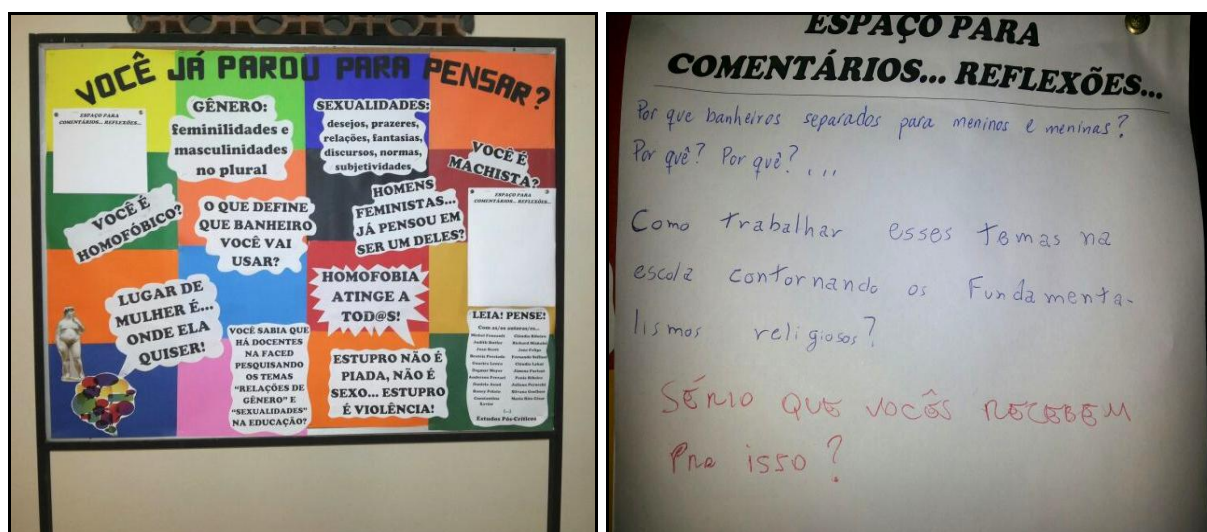 VOCÊ JÁ PAROU PARA PENSAR?
ESPAÇO PARA
COMENTÁRIOS... REFLEXÕES...
GÊNERO:
feminilidades e
masculinidades
no plural
SEXUALIDADES:
desejos, prazeres,
relações, fantasias,
discursos, normas,
subjetividades
VOCÊ É
MACHISTA?
VOCÊ É
HOMOFÓBICO?
O QUE DEFINE
QUE BANHEIRO
VOCÊ VAI
USAR?
HOMENS
FEMINISTAS...
JÁ PENSOU EM
SER UM DELES?
ESPAÇO PARA
COMENTÁRIOS... REFLEXÕES...
LUGAR DE
MULHER É...
ONDE ELA
QUISER!
HOMOFOBIA
ATINGE A
TOD@S!
VOCÊ SABIA QUE
HÁ DOCENTES
NA FACED
PESQUISANDO
OS TEMAS
"RELAÇÕES DE
GÊNERO" E
"SEXUALIDADES"
NA EDUCAÇÃO?
ESTUPRO NÃO É
PIADA, NÃO É
SEXO... ESTUPRO
É VIOLÊNCIA!
LEIA! PENSE!
Com as/os autoras/es...
Michel Foucault
Judith Butler
Guacira Louro
Dagmar Meyer
Cláudia Ribeiro
Richard Miskolci
Jane Felipe
Fernando Seffner
Paula Ribeiro
(...)
Estudos Pós-Críticos
ESPAÇO PARA
COMENTÁRIOS... REFLEXÕES...
Por que banheiros separados para meninos e meninas?
Por quê? Por quê? ...
Como trabalhar esses temas na
escola contornando os Fundamenta-
lismos religiosos?
SÉRIO QUE VOCÊS RECEBEM
Pra isso?